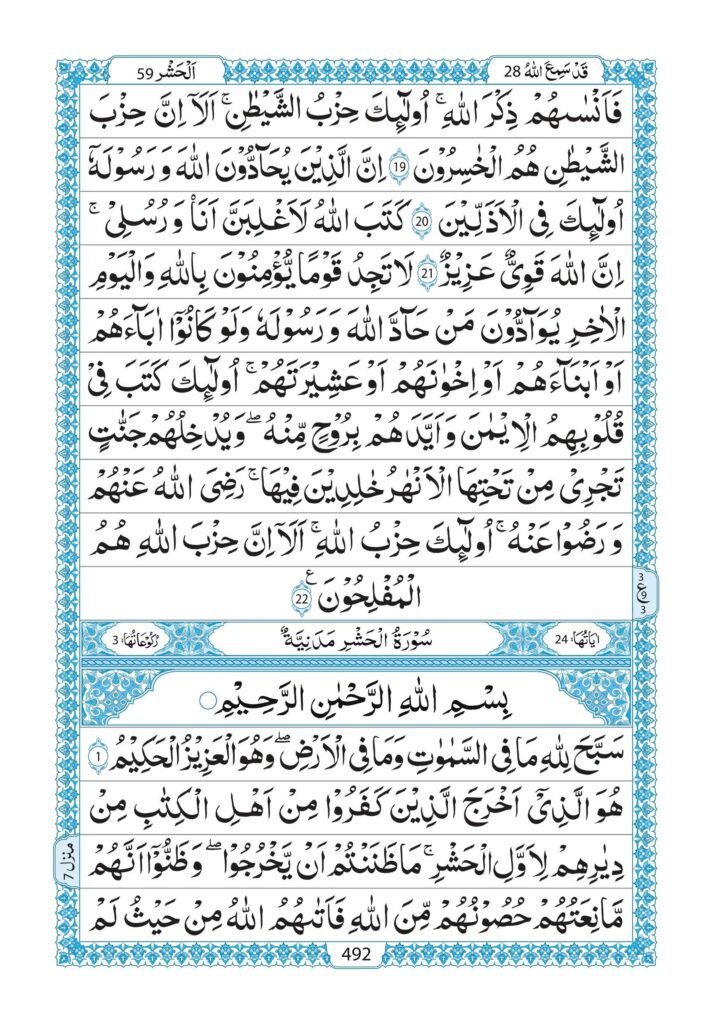 قَدۡ سَمِعَ اللّٰهُ 28
اَلۡحَشۡر 59
فَاَنۡسٰىهُمۡ ذِكۡرَ اللّٰهِ ؕ اُولٰٓئِكَ حِزۡبُ الشَّيۡطٰنِ ؕ اَلَاۤ اِنَّ حِزۡبَ
الشَّيۡطٰنِ هُمُ الۡخٰسِرُوۡنَ 19 اِنَّ الَّذِيۡنَ يُحَآدُّوۡنَ اللّٰهَ وَ رَسُوۡلَهٗۤ
اُولٰٓئِكَ فِى الۡاَذَلِّيۡنَ 20 كَتَبَ اللّٰهُ لَاَغۡلِبَنَّ اَنَا۟ وَ رُسُلِىۡ ؕ
اِنَّ اللّٰهَ قَوِىٌّ عَزِيۡزٌ 21 لَا تَجِدُ قَوۡمًا يُّؤۡمِنُوۡنَ بِاللّٰهِ وَالۡيَوۡمِ
الۡاٰخِرِ يُوَآدُّوۡنَ مَنۡ حَآدَّ اللّٰهَ وَ رَسُوۡلَهٗ وَلَوۡ كَانُوۡۤا اٰبَآءَهُمۡ
اَوۡ اَبۡنَآءَهُمۡ اَوۡ اِخۡوٰنَهُمۡ اَوۡ عَشِيۡرَتَهُمۡ ؕ اُولٰٓئِكَ كَتَبَ فِىۡ
قُلُوۡبِهِمُ الۡاِيۡمٰنَ وَاَيَّدَهُمۡ بِرُوۡحٍ مِّنۡهُ ؕ وَيُدۡخِلُهُمۡ جَنّٰتٍ
تَجۡرِىۡ مِنۡ تَحۡتِهَا الۡاَنۡهٰرُ خٰلِدِيۡنَ فِيۡهَا ؕ رَضِىَ اللّٰهُ عَنۡهُمۡ
وَ رَضُوۡا عَنۡهُ ؕ اُولٰٓئِكَ حِزۡبُ اللّٰهِ ؕ اَلَاۤ اِنَّ حِزۡبَ اللّٰهِ هُمُ
الۡمُفۡلِحُوۡنَ ع 22
3 ع 9 3
اٰيَاتُهَا: 24
سُوۡرَةُ الۡحَشۡرِ مَدَنِيَّةٌ
رُكُوۡعَاتُهَا: 3
بِسۡمِ اللّٰهِ الرَّحۡمٰنِ الرَّحِيۡمِ
سَبَّحَ لِلّٰهِ مَا فِى السَّمٰوٰتِ وَمَا فِى الۡاَرۡضِ ۖ وَهُوَ الۡعَزِيۡزُ الۡحَكِيۡمُ 1
هُوَ الَّذِىۡۤ اَخۡرَجَ الَّذِيۡنَ كَفَرُوۡا مِنۡ اَهۡلِ الۡكِتٰبِ مِنۡ
دِيٰرِهِمۡ لِاَوَّلِ الۡحَشۡرِ ؕ مَا ظَنَنۡتُمۡ اَنۡ يَّخۡرُجُوۡا ۖ وَظَنُّوۡۤا اَنَّهُمۡ
مَّانِعَتُهُمۡ حُصُوۡنُهُمۡ مِّنَ اللّٰهِ فَاَتٰىهُمُ اللّٰهُ مِنۡ حَيۡثُ لَمۡ
منزل 7
492